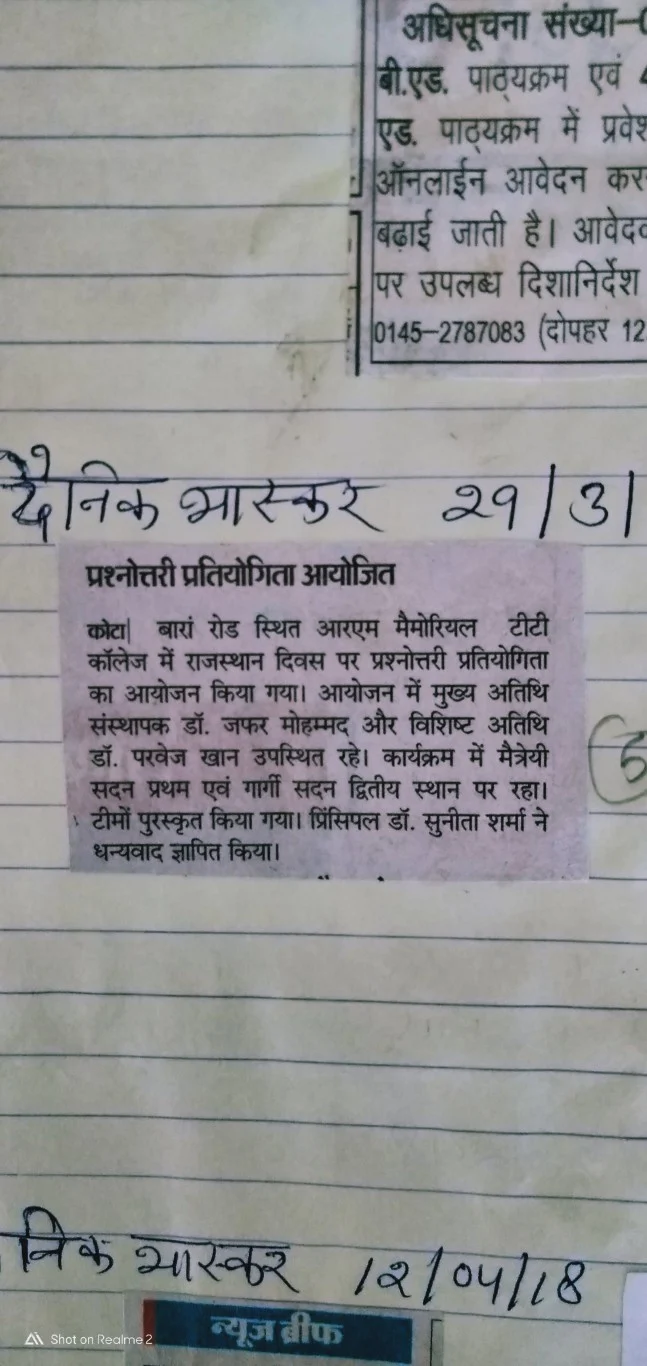 अधिसूचना संख्या–0
बी.एड. पाठ्यक्रम एवं 4
एड. पाठ्यक्रम में प्रवेश
ऑनलाईन आवेदन कर
बढ़ाई जाती है। आवेदक
पर उपलब्ध दिशानिर्देश
0145–2787083 (दोपहर 12
दैनिक भास्कर 29/3/
प्रश्नोत्तरी प्रतियोगिता आयोजित
कोटा| बारां रोड स्थित आरएम मैमोरियल टीटी
कॉलेज में राजस्थान दिवस पर प्रश्नोत्तरी प्रतियोगिता
का आयोजन किया गया। आयोजन में मुख्य अतिथि
संस्थापक डॉ. जफर मोहम्मद और विशिष्ट अतिथि
डॉ. परवेज खान उपस्थित रहे। कार्यक्रम में मैत्रेयी
सदन प्रथम एवं गार्गी सदन द्वितीय स्थान पर रहा।
टीमों पुरस्कृत किया गया। प्रिंसिपल डॉ. सुनीता शर्मा ने
धन्यवाद ज्ञापित किया।
निक भास्कर 12/04/18
न्यूज ब्रीफ
Shot on Realme 2